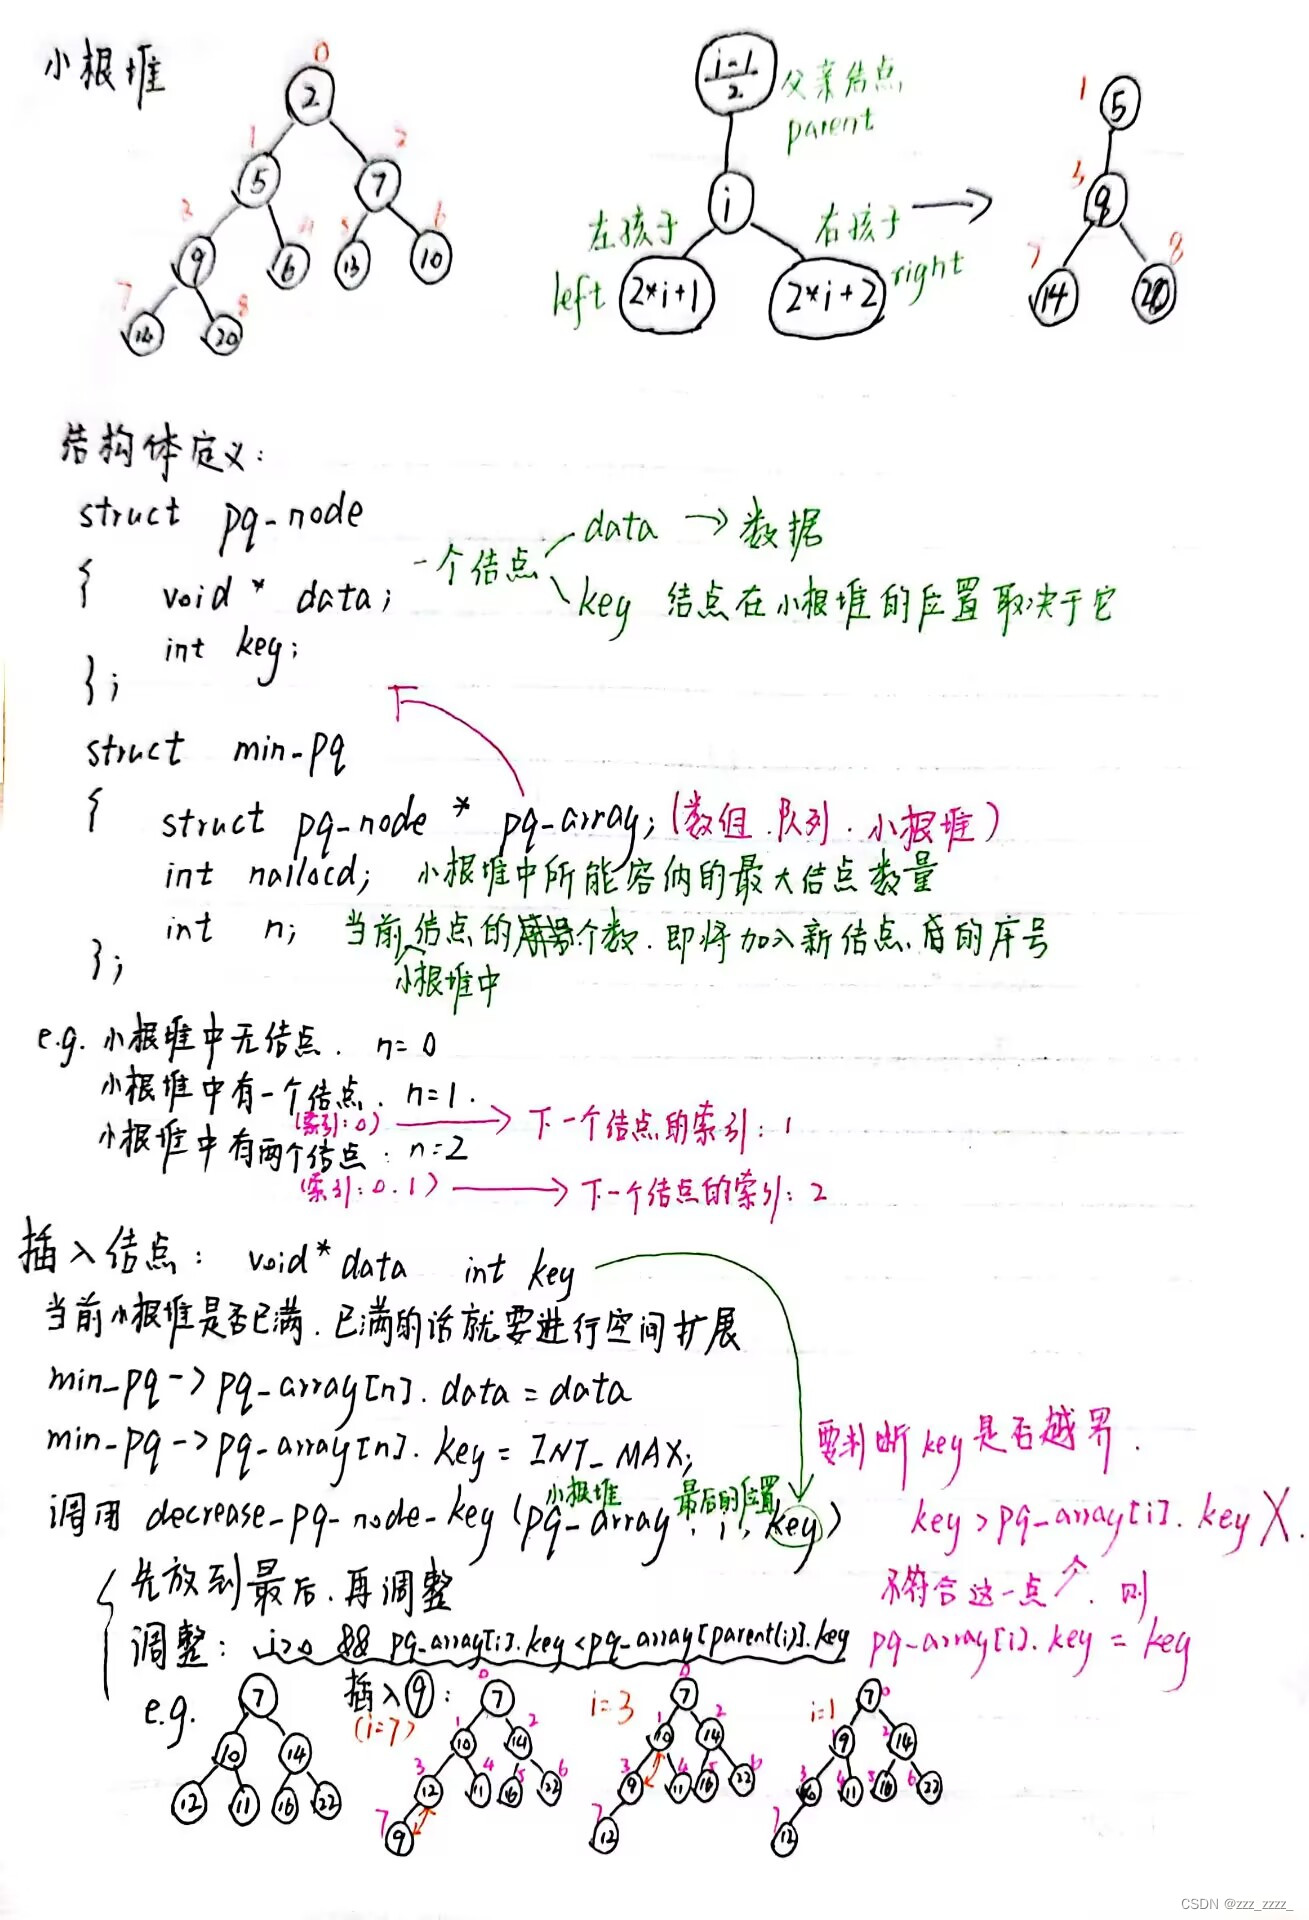 小根堆
0
2
1 2
5 7
3 4 5 6
9 6 13 10
7 8
14 20
i-1
2
父亲结点
parent
i
左孩子 右孩子
left 2*i+1 2*i+2 right
1 5
3 9
7 8
14 20
结构体定义:
struct pq-node
{ void * data;
int key;
};
一个结点 data → 数据
key 结点在小根堆的位置取决于它
struct min-pq
{ struct pq-node * pq-array; (数组.队列.小根堆)
int nallocd; 小根堆中所能容纳的最大结点数量
int n; 当前结点的个数.即将加入新结点的序号
小根堆中
};
e.g. 小根堆中无结点. n=0
小根堆中有一个结点. n=1.
(索引:0) → 下一个结点的索引:1
小根堆中有两个结点: n=2
(索引:0.1) → 下一个结点的索引:2
插入结点: void* data int key
当前小根堆是否已满.已满的话就要进行空间扩展
min_pq->pq_array[n].data=data
min_pq->pq_array[n].key=INT_MAX;
要判断key是否越界.
小根堆 最后的位置
调用 decrease_pq_node_key (pq_array, i, key)
key>pq_array[i].key X.
先放到最后.再调整
不符合这一点↗.则
调整: i>0 && pq_array[i].key<pq_array[parent(i)].key
pq_array[i].key = key
e.g.
7
10 14
12 11 16 22
插入9:
(i=7)
0
7
1 2
10 14
3 4 5 6
12 11 16 22
7
9
i=3
0
7
1 2
10 14
3 4 5 6
9 11 16 22
7
12
i=1
0
7
1 2
9 14
3 4 5 6
10 11 16 22
7
12
CSDN @zzz_zzzz_